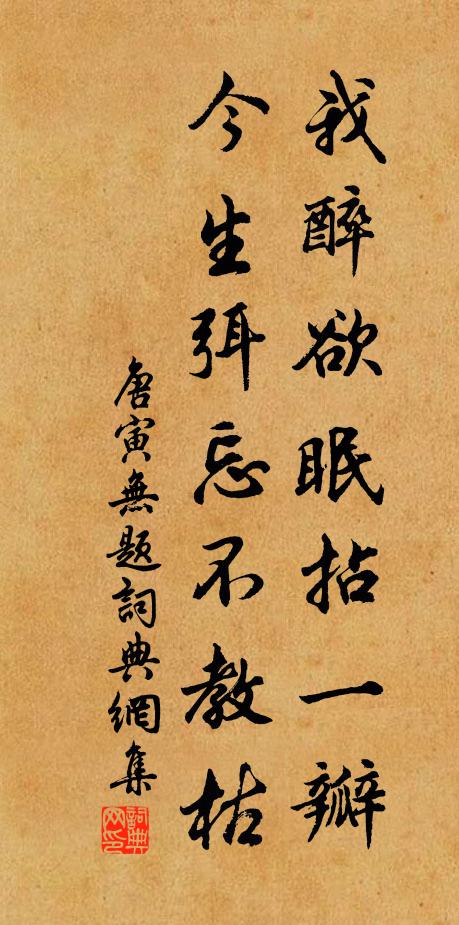 我醉欲眠拈一瓣
今生弭忘不教枯
唐寅無題詞典網集
詞典網印